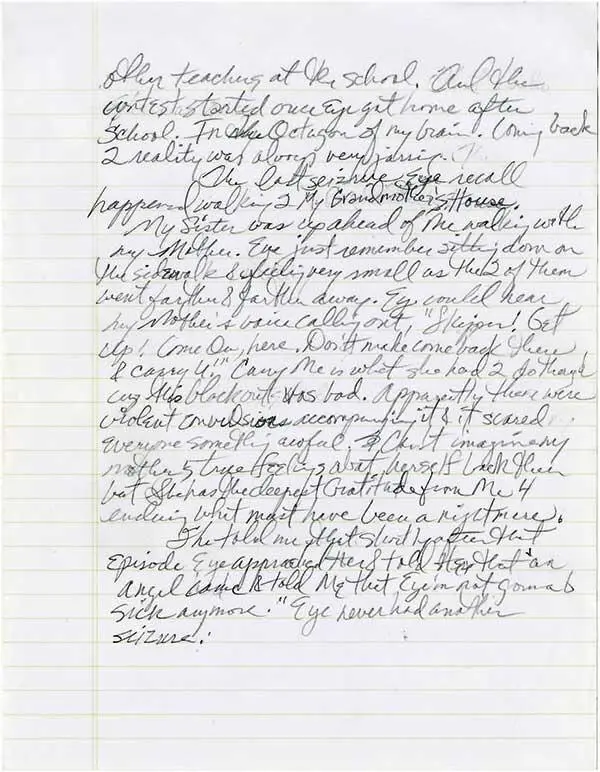 other teaching at the school. And the
contest started once Eye got home after
school. In the Octagon of my brain. Coming back
2 reality was always very jarring.
The last seizure Eye recall
happened walking 2 My Grandmother's House.
My Sister was up ahead of Me walking with
my Mother. Eye just remember sitting down on
the sidewalk & feeling very small as the 2 of them
went farther & farther away. Eye could hear
my Mother's voice calling out, "Skipper! Get
up! Come On, here. Don't make come back there
& carry U!" Carry Me is what she had 2 do though
cuz this blackout was bad. Apparently there were
violent convulsions accompanying it & it scared
everyone something awful. Eye can't imagine my
mother's true feelings about herself back then
but She has the deepest Gratitude from Me 4
enduring what must have been a nightmare.
She told me that shortly after that
Episode Eye approached Her & told Her that "an
angel came & told Me that Eye'm not gonna b
sick anymore." Eye never had another
seizure.